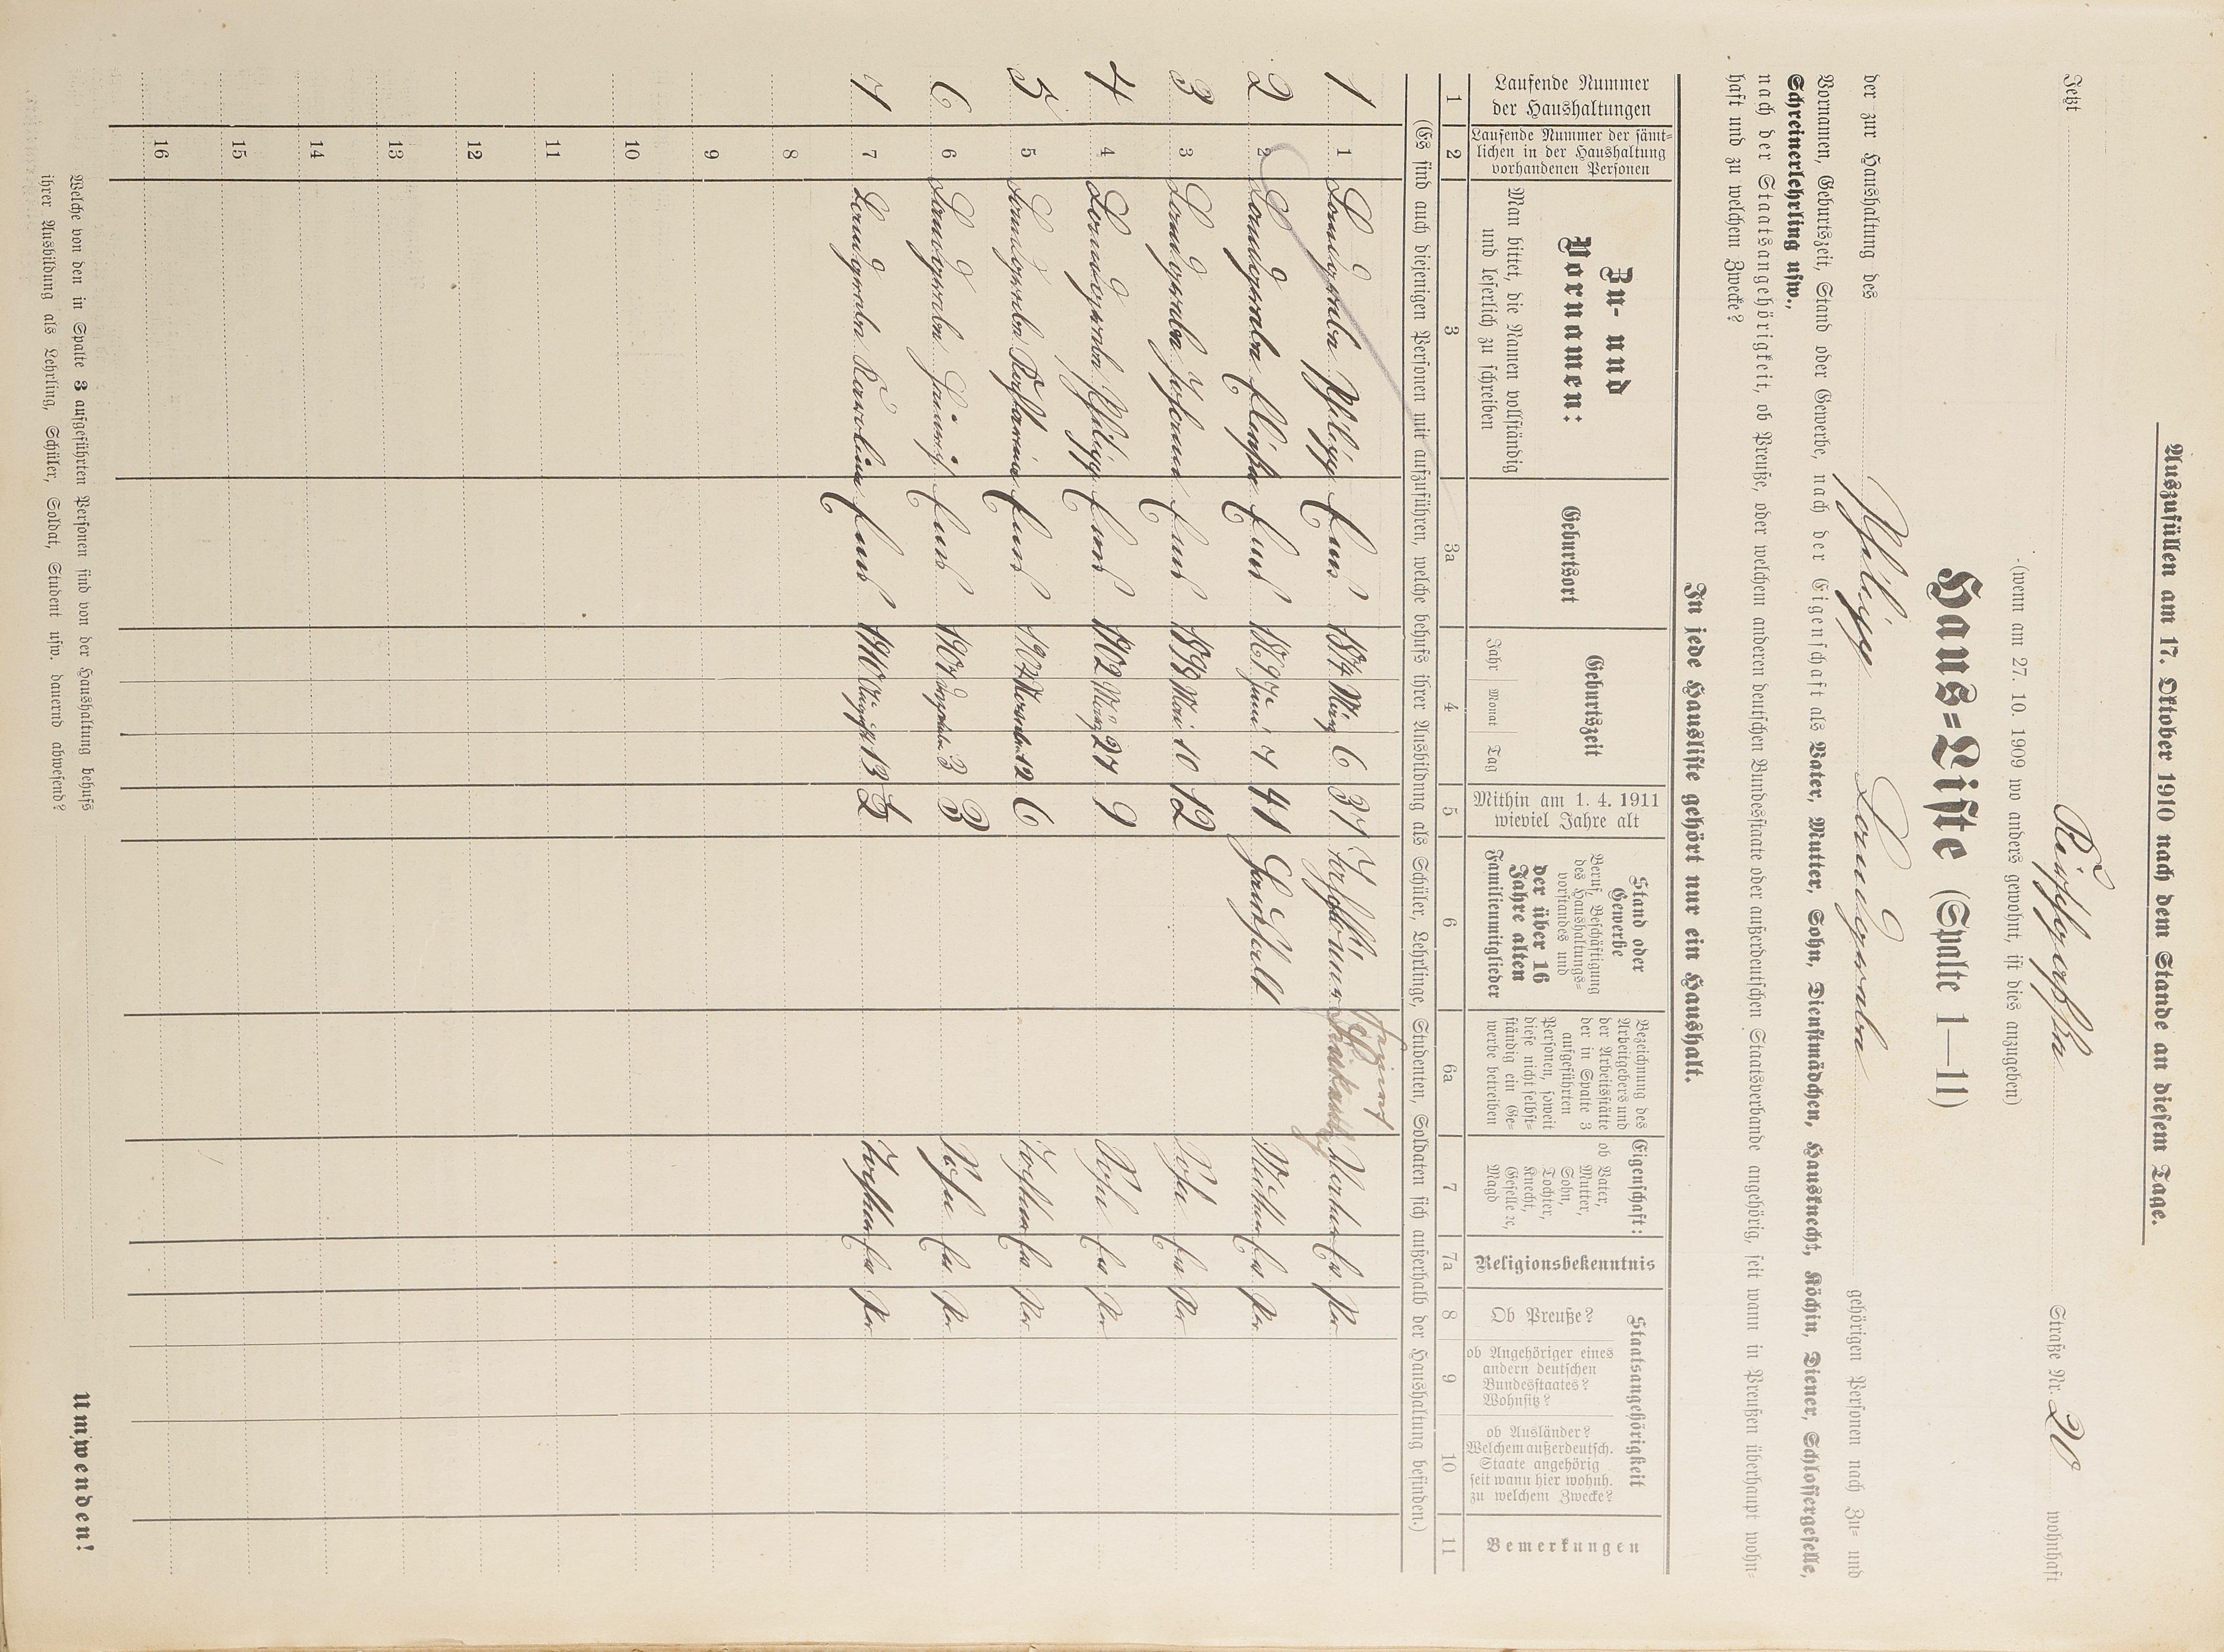 Auszufüllen am 17. Oktober 1910 nach dem Stande an diesem Tage.
Jetzt Straße Nr. 20 wohnhaft
(wenn am 27. 10. 1909 wo anders gewohnt, ist dies anzugeben)
Haus=Liste (Spalte 1—11)
der zur Haushaltung des Philipp gehörigen Personen nach Zu= und
Vornamen, Geburtszeit, Stand oder Gewerbe, nach der Eigenschaft als Vater, Mutter, Sohn, Dienstmädchen, Hausknecht, Köchin, Diener, Schlossergeselle,
Schreinerlehrling usw.,
nach der Staatsangehörigkeit, ob Preuße, oder welchem anderen deutschen Bundesstaate oder außerdeutschen Staatsverbande angehörig, seit wann in Preußen überhaupt wohn=
haft und zu welchem Zwecke?
In jede Hausliste gehört nur ein Haushalt.
Laufende Nummer der Haushaltungen
Laufende Nummer der sämt=lichen in der Haushaltung vorhandenen Personen
Zu- und Vornamen:
Man bittet, die Namen vollständig und leserlich zu schreiben
Geburtsort
Geburtszeit
Jahr Monat Tag
Mithin am 1. 4. 1911 wieviel Jahre alt
Stand oder Gewerbe
Beruf, Beschäftigung des Haushaltungs=vorstandes und
der über 16 Jahre alten Familienmitglieder
Bezeichnung des Arbeitgebers und der Arbeitsstätte der in Spalte 3 aufgeführten Personen, soweit diese nicht selbst=ständig ein Ge=werbe betreiben
Eigenschaft:
ob Vater, Mutter, Sohn, Tochter, Knecht, Geselle ꝛc, Magd
Religionsbekenntnis
Staatsangehörigkeit
Ob Preuße?
ob Angehöriger eines andern deutschen Bundesstaates? Wohnsitz?
ob Ausländer? Welchem außerdeutsch. Staate angehörig seit wann hier wohnh. zu welchem Zwecke?
Bemerkungen
1 2 3 3a 4 5 6 6a 7 7a 8 9 10 11
(Es sind auch diejenigen Personen mit aufzuführen, welche behufs ihrer Ausbildung als Schüler, Lehrlinge, Studenten, Soldaten sich außerhalb der Haushaltung befinden.)
1 1 Philipp Ems 1874 März 6 37 Vater
2 2 Ems 1869 Juni 7 41 Haushalt Mutter
3 3 Johann Ems 1898 Mai 10 12 Sohn
4 4 Philipp Ems 1902 März 27 9 Sohn
5 5 Katharina Ems November 12 6 Tochter
6 6 Heinrich Ems 1907 3 3 Sohn
7 7 Karolina Ems 1910 August 13 Tochter
8
9
10
11
12
13
14
15
16
Welche von den in Spalte 3 aufgeführten Personen sind von der Haushaltung behufs
ihrer Ausbildung als Lehrling, Schüler, Soldat, Student usw. dauernd abwesend?
Umwenden!